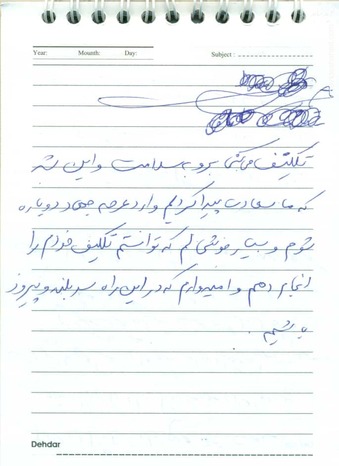 Year: Mounth: Day: Subject :
تکلیف می‌کنی برو به سلامت و این شد
که ما سعادت پیدا کردیم وارد عرصه جهاد دوباره
شوم و بسیار خوشحالم که توانستم تکلیف خودم را
انجام دهم و امیدوارم که در این راه سربلند و پیروز
باشیم.
Dehdar